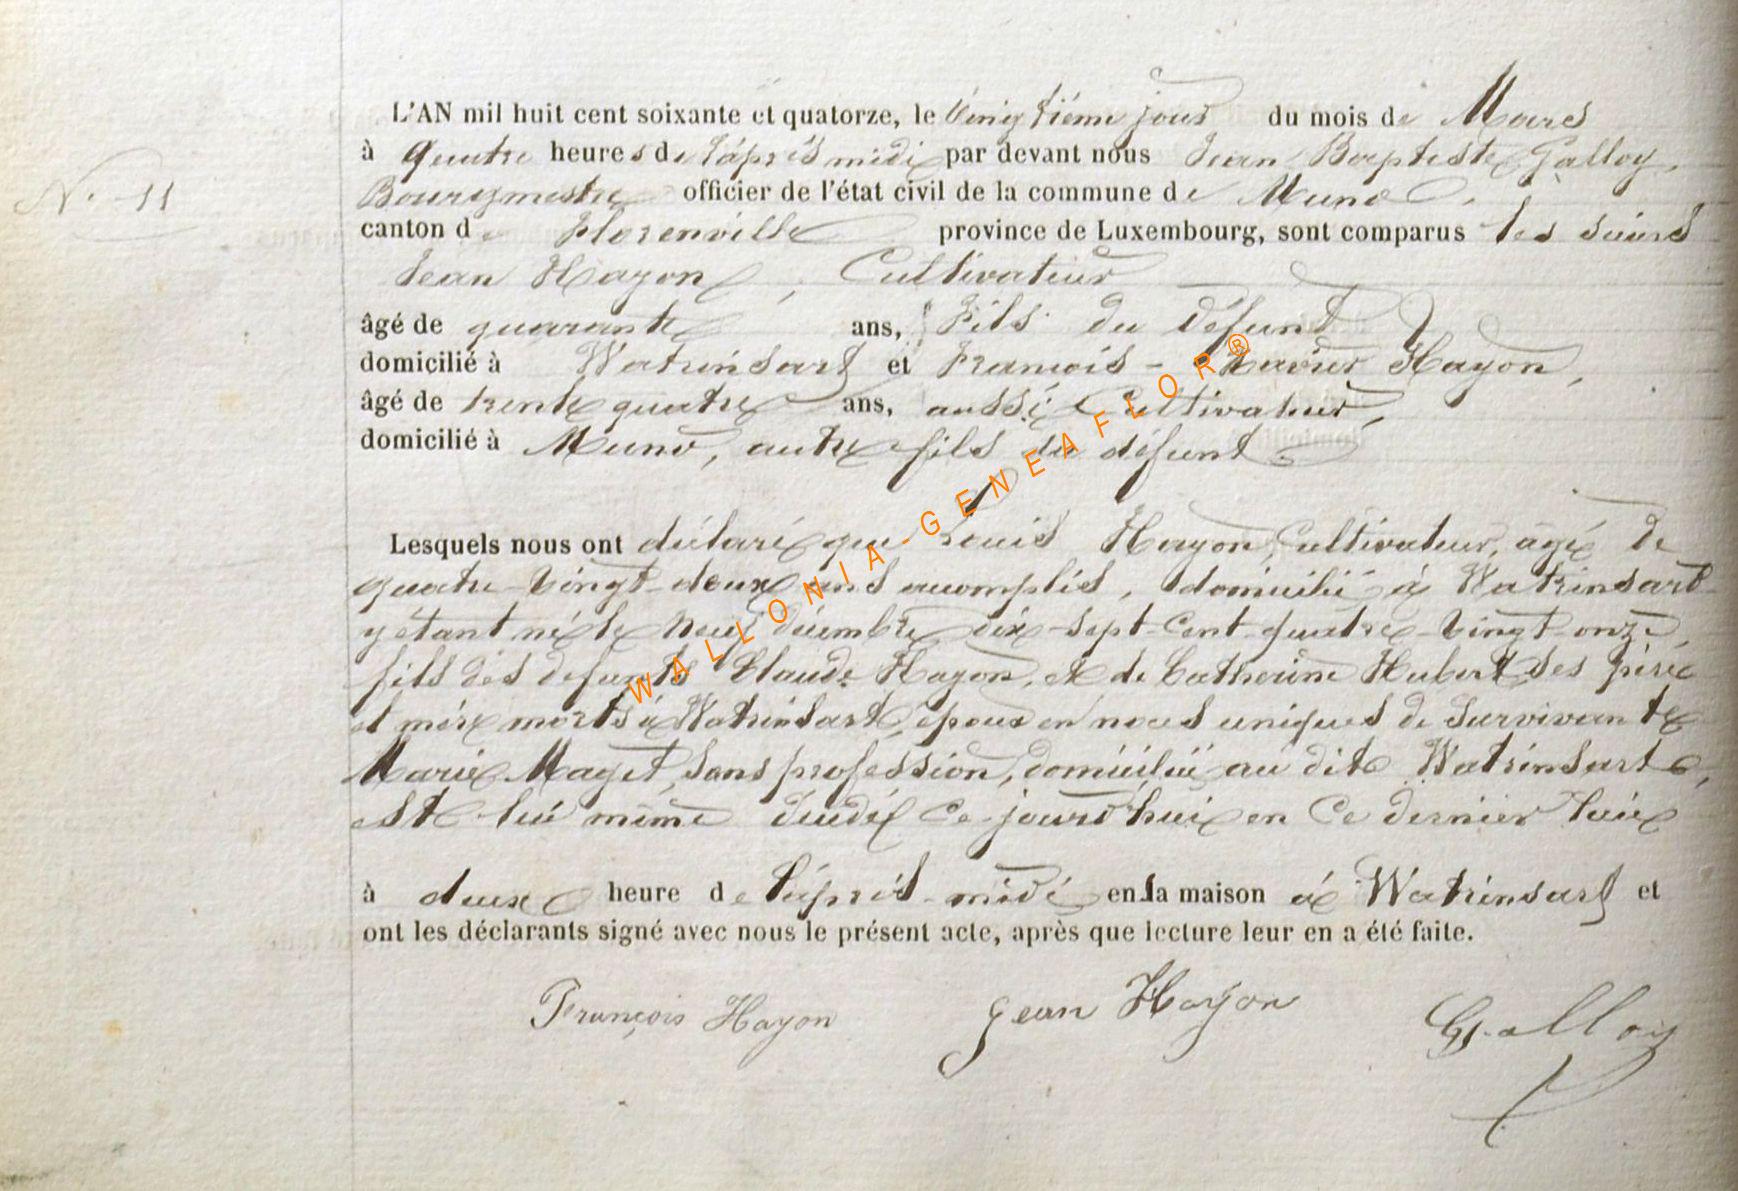 L'AN mil huit cent soixante et quatorze, le Vingtième jour du mois de Mars
N. 11
à quatre heures de l'après midi par devant nous Jean Baptiste Galloy,
Bourgmestre officier de l'état civil de la commune de Muno,
canton de Florenville province de Luxembourg, sont comparus les sieurs
Jean Hayon, Cultivateur
âgé de quarante ans, Fils du défunt
domicilié à Watrinsart et Francois-Xavier Hayon,
âgé de trente quatre ans, aussi Cultivateur,
domicilié à Muno, autre fils du défunt
Lesquels nous ont déclaré que Louis Hayon, Cultivateur, agé de
quatre-Vingt-deux ans accomplis, domicilié à Watrinsart
y étant né le neuf décembre dix-sept-cent-quatre-Vingt-onze,
fils des defunts Claude Hayon, et de Catherine Hubert ses père
et mère morts à Watrinsart, époux en noces uniques de Survivante
Marie Maget, sans profession, domiciliée au dite Watrinsart,
est lui même décédé ce jourd'hui en ce dernier lieu
à deux heure de l'après-midi en sa maison à Watrinsart et
ont les déclarants signé avec nous le présent acte, après que lecture leur en a été faite.
François Hayon Jean Hayon Galloy
WALLONIA-GENEAFLOR®